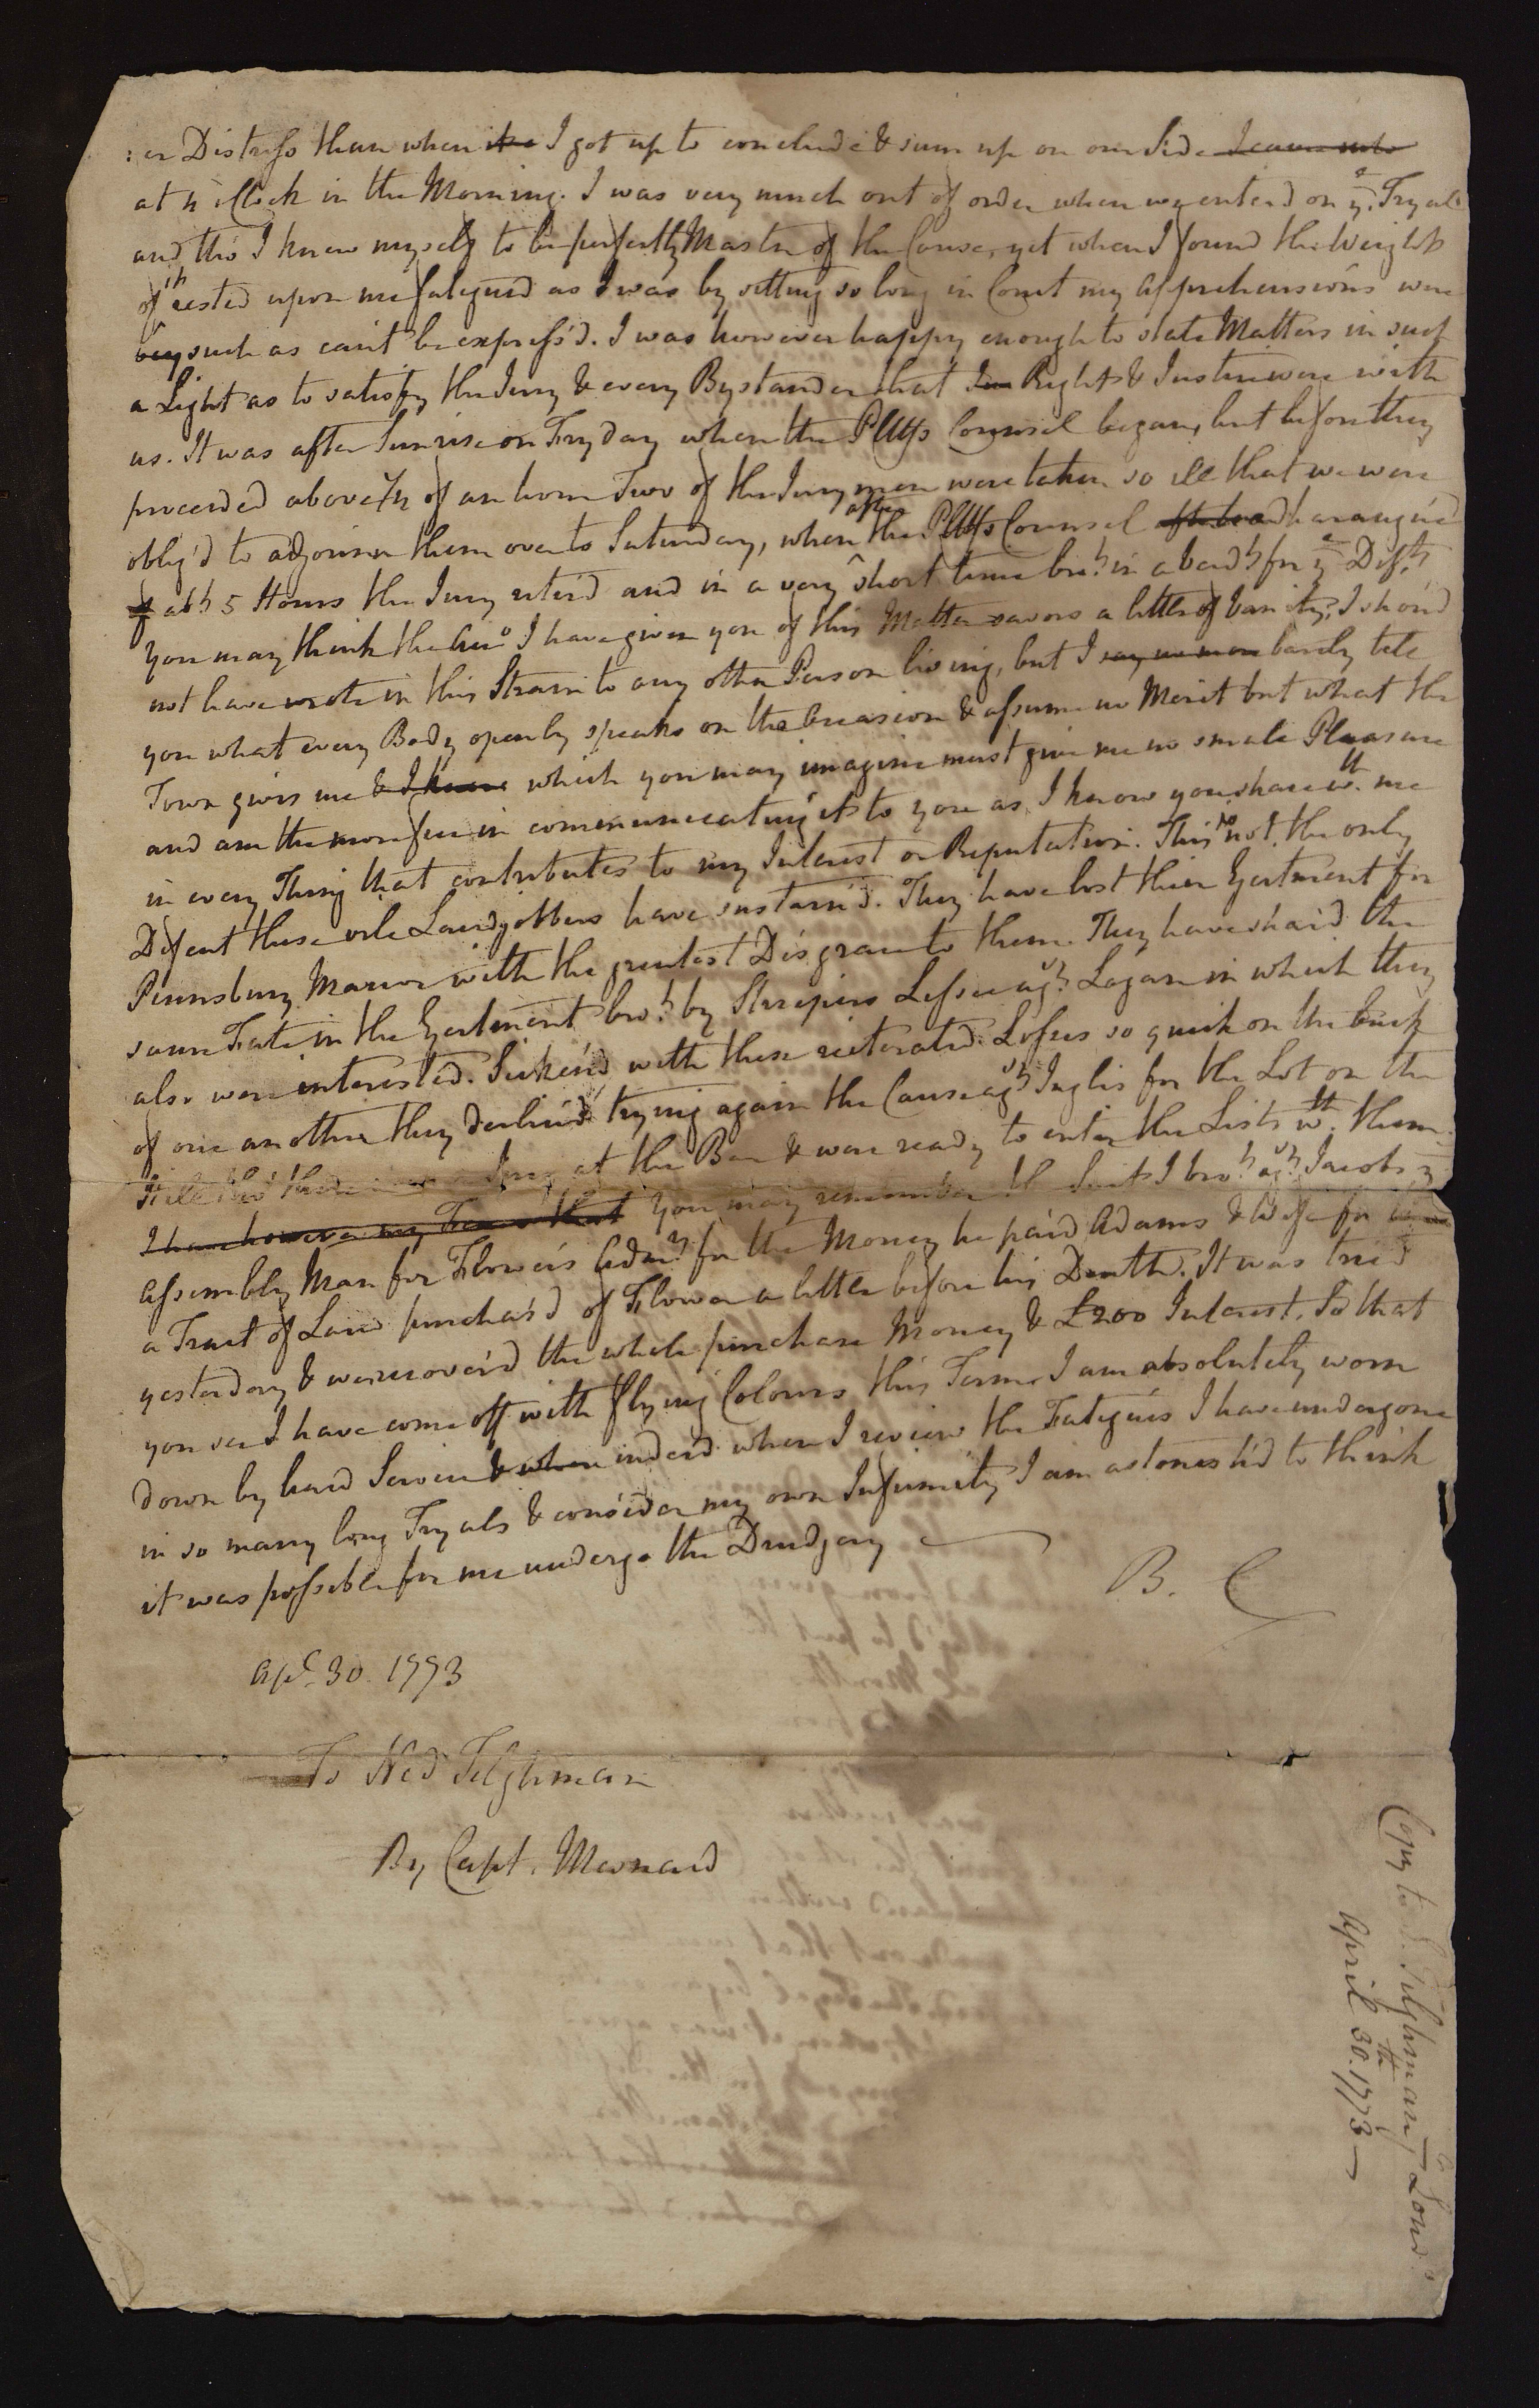 :er Distress than when I got up to conclude & sum up on our Side I came not
at 4 oClock in the Morning. I was very much out of order when we enterd on ye. Tryal
and tho' I knew myself to be perfectly Master of the Cause, yet when I found the Weight
of it rested upon me fatigued as I was by sitting so long in Court my Apprehensions were
such as can't be express'd. I was however happy enough to state Matters in such
a Light as to satisfy the Jury & every Bystander that Right & Justice were with
us. It was after Sunrise on Fryday when the Pltffs Counsel began, but before they
proceeded above 1/2 of an hour Two of the Jury men were taken so ill that we were
oblig'd to adjourn them over to Saturday, when after the Pltffs Counsel had harangu'd
abt 5 Hours the Jury retir'd and in a very short time brot in a verdt for ye Deft.
You may think the Acco I have given you of this Matter savors a little of Vanity, I shou'd
not have wrote in this Strain to any other Person living, but I say no more barely tell
you what every Body openly speaks on the Occasion & assume no Merit but what the
Town gives me & I know which you may imagine must give me no small Pleasure
and am the more free in communicating it to you as I know you share wth. me
in every Thing that contributes to my Interest or Reputation. This is not the only
Defeat these vile Landjobbers have sustain'd. They have lost their Ejectment for
Pennsbury Manor with the greatest Disgrace to them. They have shar'd the
same Fate in the Ejectment brot by Streipers Lessee agt Logan in which they
also were interested. Sicken'd with these reiterated Losses so quick on the back
of one another they declin'd trying again the Cause agt Inglis for the Lot on the
tho' there Jury at the Bar & were ready to enter the Lists wth. them.
I have however my you may remember the Suit I brot agt Jacobs ye
Assembly Man for Flower's Admr for the Money he paid Adams & Wife for
a Tract of Land purchas'd of Flower a little before his Death. It was tried
yesterday & we recover'd the whole purchase Money & £200 Interest. So that
you see I have come off with flying Colours this Term. I am absolutely worn
down by hard Service & when indeed when I review the Fatigues I have undergone
in so many long Tryals & consider my own Infirmity I am astonish'd to think
it was possible for me undergo the Drudgery
B. C
Apl. 30. 1773
To Ned Tilghman
By Capt. Maynard
Copy to E. Tilghman, Lond.
April 30.th 1773